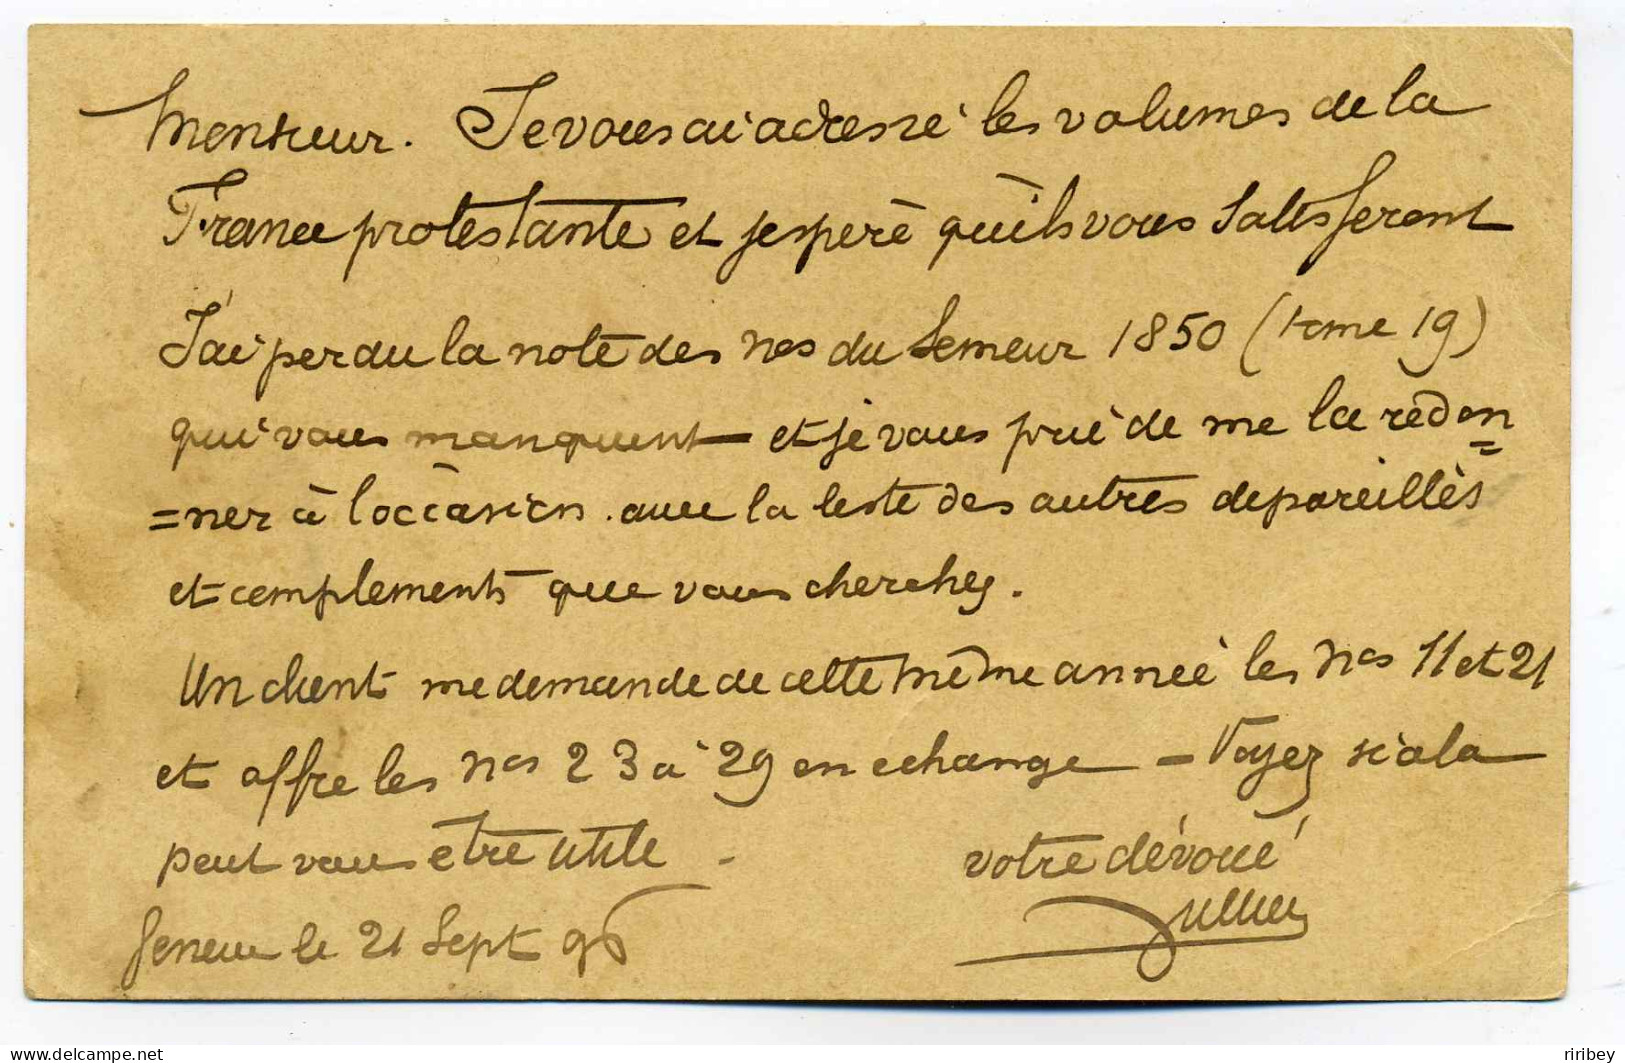 Monsieur. Je vous ai adressé les volumes de la
France protestante et j'espère qu'ils vous satisferont
J'ai perdu la note des nos du Semeur 1850 (tome 19)
qui vous manquent — et je vous prie de me la redon
=ner à l'occasion. avec la liste des autres depareillés
et complements que vous cherchez.
Un client me demande de cette même année les nos 11 et 21
et offre les nos 23 à 29 en echange — Voyez si cela
peut vous être utile -
votre dévoué
Geneve le 21 Sept 96
Jullien
delcampe.net
riribey